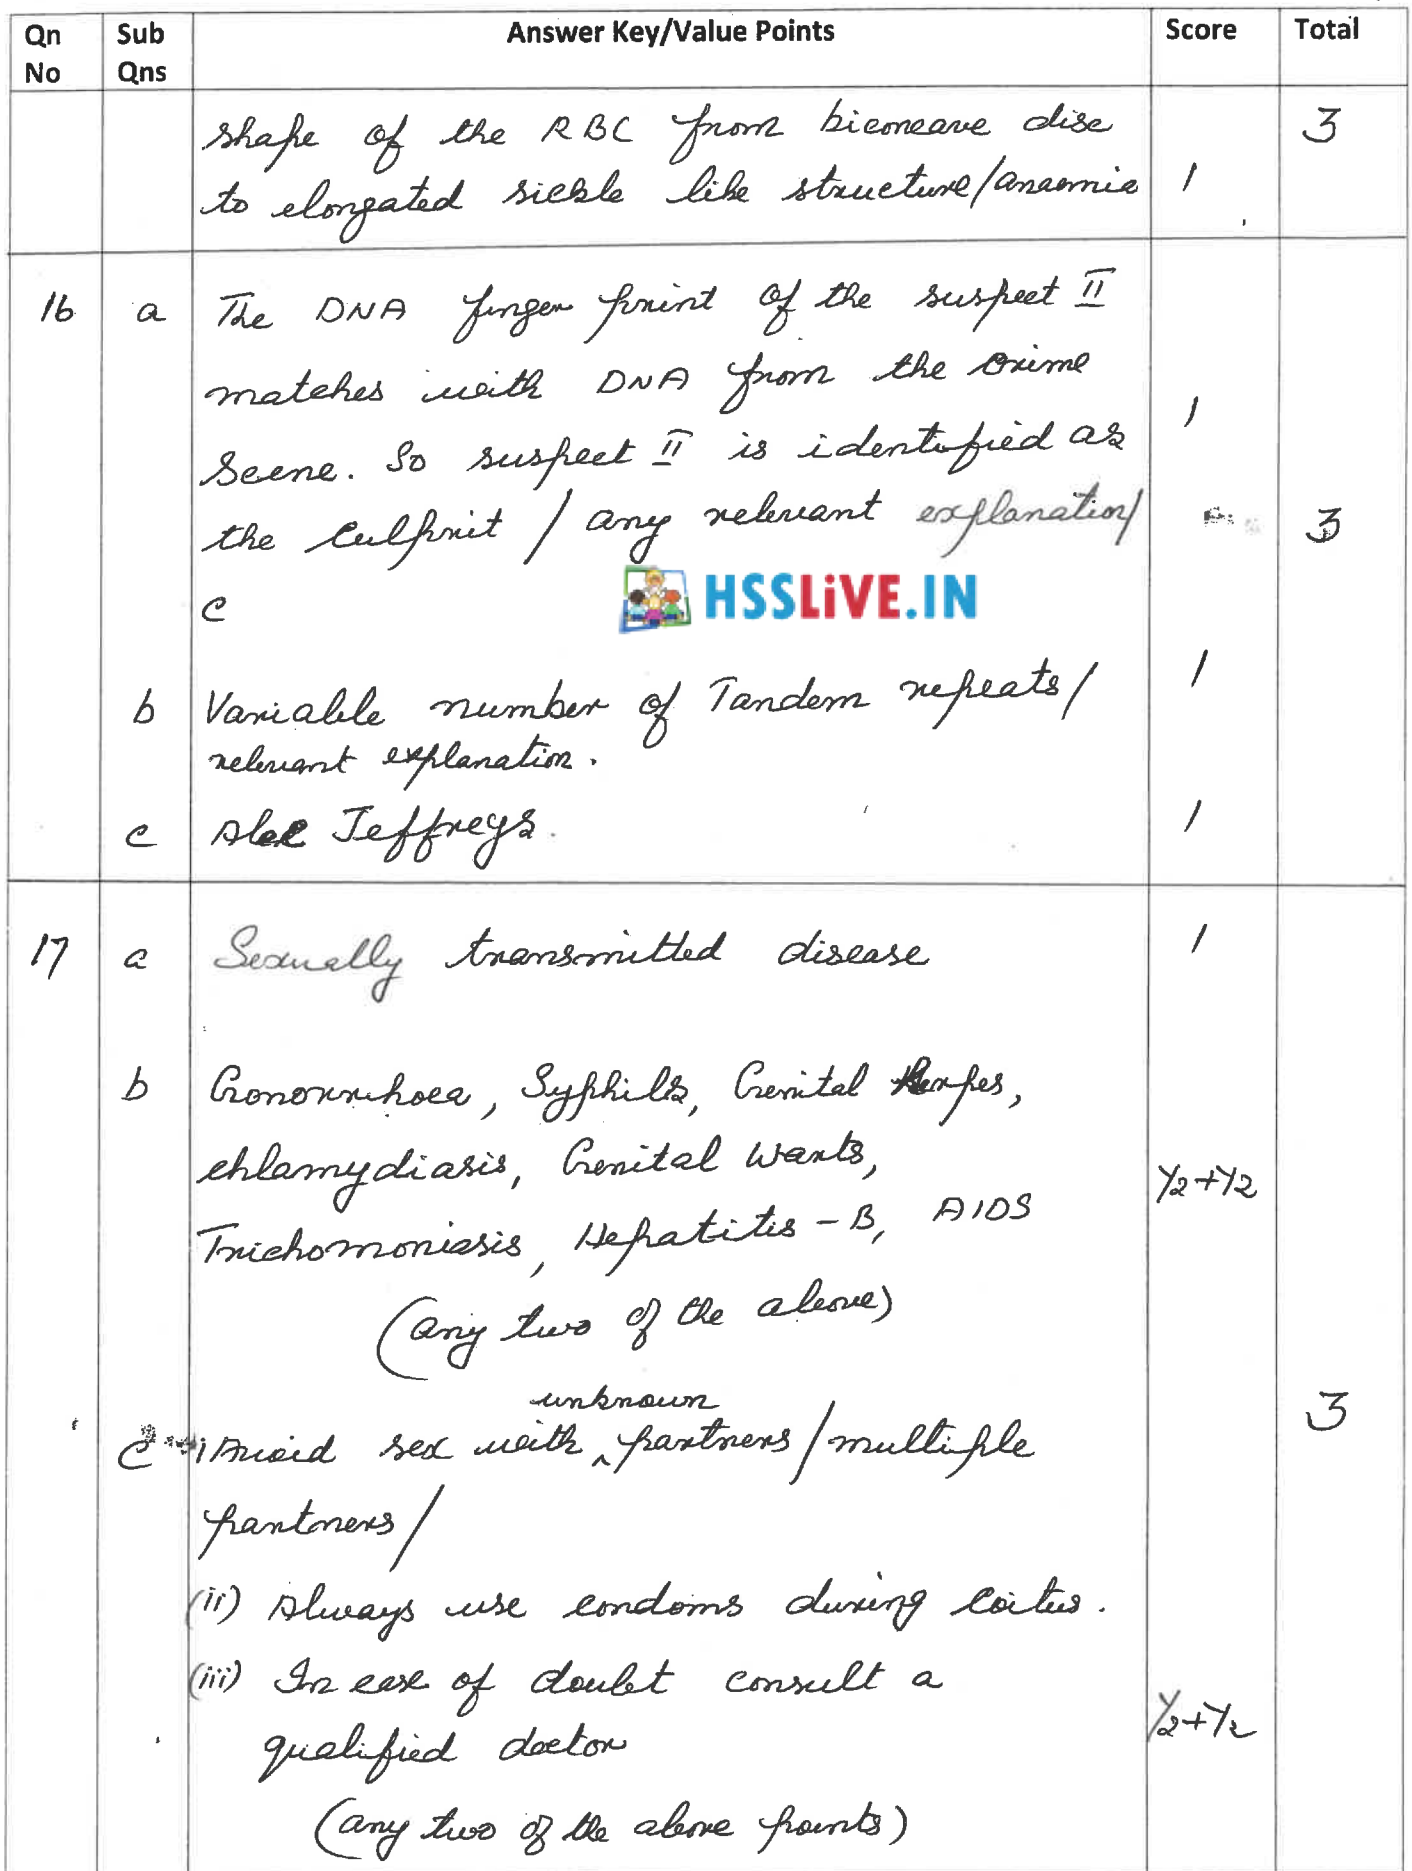 Qn No Sub Qns Answer Key/Value Points Score Total
shape of the RBC from biconcave disc 3
to elongated sickle like structure/anaemia 1
16 a The DNA finger print of the suspect II
matches with DNA from the crime
Scene. So suspect II is identified as 1
the culprit / any relevant explanation/ 3
c
HSSLiVE.IN
b Variable number of Tandem repeats/ 1
relevant explanation.
c Alec Jeffreys. 1
17 a Sexually transmitted disease 1
b Gonorrhoea, Syphilis, Genital Herpes,
chlamydiasis, Genital Warts, 1/2+1/2
Trichomoniasis, Hepatitis-B, AIDS
(any two of the above)
unknown 3
c i Avoid sex with ^ partners/multiple
partners/
(ii) Always use condoms during coitus.
(iii) In case of doubt consult a
qualified doctor 1/2+1/2
(any two of the above points)